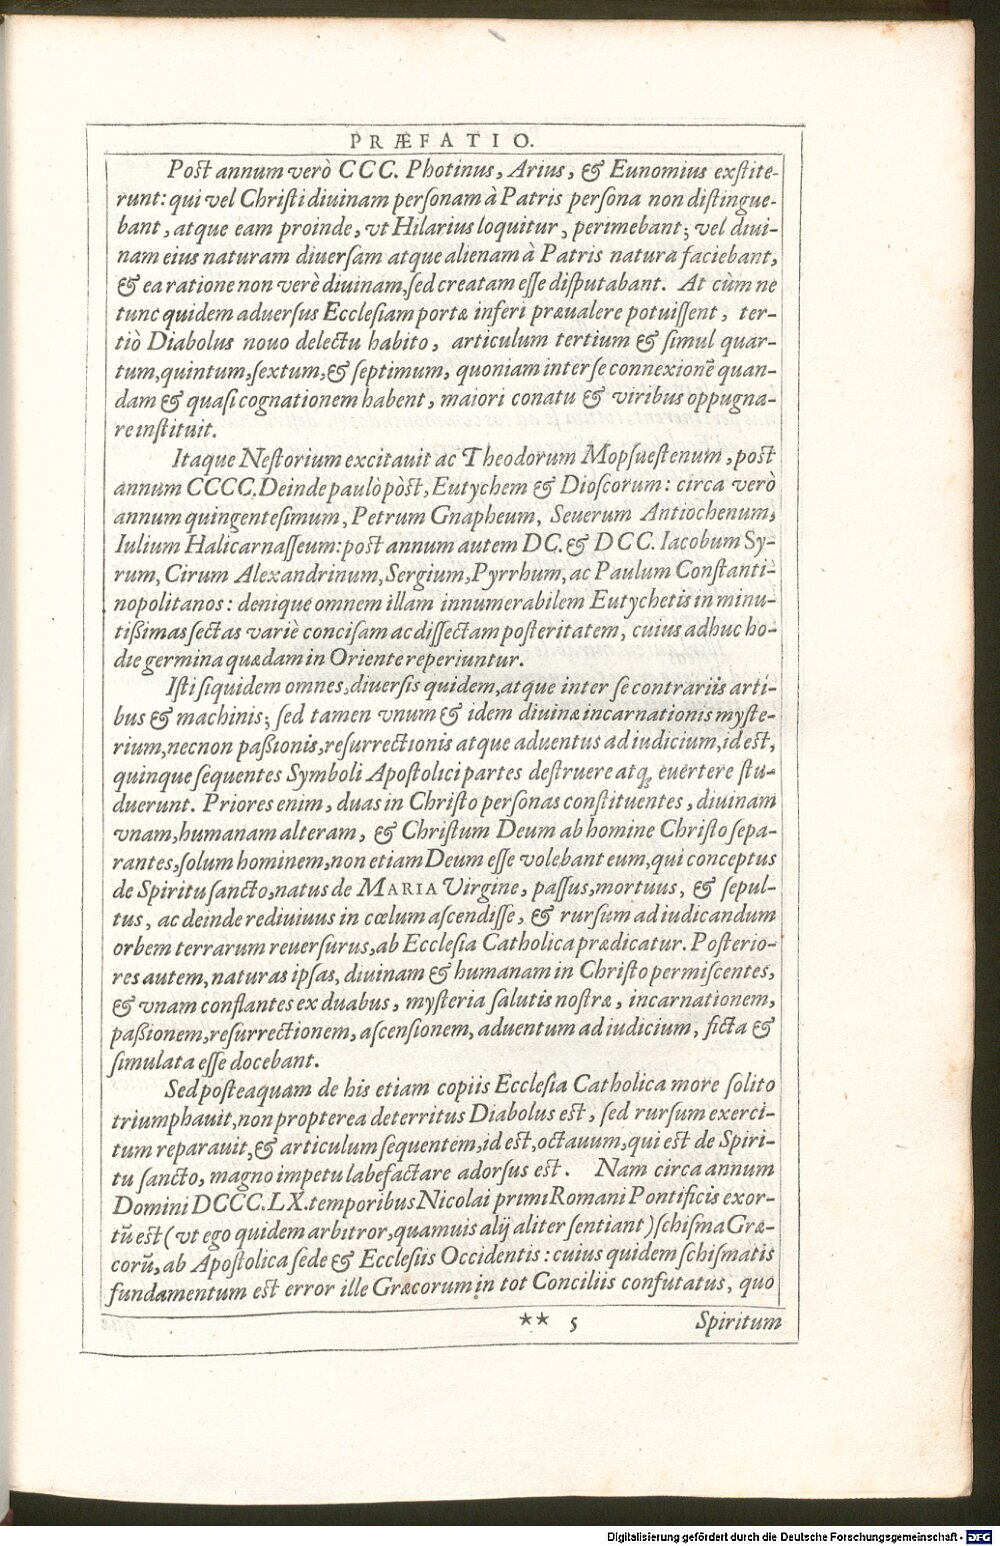 PRÆFATIO.
Poſt annum verò CCC. Photinus, Arius, & Eunomius exſtite-
runt: qui vel Chriſti diuinam perſonam à Patris perſona non diſtingue-
bant, atque eam proinde, vt Hilarius loquitur, perimebant; vel diui-
nam eius naturam diuerſam atque alienam à Patris natura faciebant,
& ea ratione non verè diuinam, ſed creatam eſſe diſputabant. At cùm ne
tunc quidem aduerſus Eccleſiam portæ inferi præualere potuiſſent, ter-
tiò Diabolus nouo delectu habito, articulum tertium & ſimul quar-
tum, quintum, ſextum, & ſeptimum, quoniam inter ſe connexionẽ quan-
dam & quaſi cognationem habent, maiori conatu & viribus oppugna-
re inſtituit.
Itaque Neſtorium excitauit ac Theodorum Mopſueſtenum, poſt
annum CCCC. Deinde paulò pòſt, Eutychem & Dioſcorum: circa verò
annum quingenteſimum, Petrum Gnapheum, Seuerum Antiochenum,
Iulium Halicarnaſſeum: poſt annum autem DC. & DCC. Iacobum Sy-
rum, Cirum Alexandrinum, Sergium, Pyrrhum, ac Paulum Conſtanti-
nopolitanos: denique omnem illam innumerabilem Eutychetis in minu-
tißimas ſectas variè conciſam ac diſſectam poſteritatem, cuius adhuc ho-
die germina quædam in Oriente reperiuntur.
Iſti ſiquidem omnes, diuerſis quidem, atque inter ſe contrariis arti-
bus & machinis; ſed tamen vnum & idem diuinæ incarnationis myſte-
rium, necnon paßionis, reſurrectionis atque aduentus ad iudicium, id eſt,
quinque ſequentes Symboli Apoſtolici partes deſtruere atq; euertere ſtu-
duerunt. Priores enim, duas in Chriſto perſonas conſtituentes, diuinam
vnam, humanam alteram, & Chriſtum Deum ab homine Chriſto ſepa-
rantes, ſolum hominem, non etiam Deum eſſe volebant eum, qui conceptus
de Spiritu ſancto, natus de MARIA Virgine, paſſus, mortuus, & ſepul-
tus, ac deinde rediuiuus in cœlum aſcendiſſe, & rurſum ad iudicandum
orbem terrarum reuerſurus, ab Eccleſia Catholica prædicatur. Poſterio-
res autem, naturas ipſas, diuinam & humanam in Chriſto permiſcentes,
& vnam conflantes ex duabus, myſteria ſalutis noſtræ, incarnationem,
paßionem, reſurrectionem, aſcenſionem, aduentum ad iudicium, ficta &
ſimulata eſſe docebant.
Sed poſteaquam de his etiam copiis Eccleſia Catholica more ſolito
triumphauit, non propterea deterritus Diabolus eſt, ſed rurſum exerci-
tum reparauit, & articulum ſequentem, id eſt, octauum, qui eſt de Spiri-
tu ſancto, magno impetu labefactare adorſus eſt. Nam circa annum
Domini DCCC.LX. temporibus Nicolai primi Romani Pontificis exor-
tũ eſt (vt ego quidem arbitror, quamuis alij aliter ſentiant) ſchiſma Græ-
corũ, ab Apoſtolica ſede & Eccleſiis Occidentis: cuius quidem ſchiſmatis
fundamentum eſt error ille Græcorum in tot Conciliis confutatus, quo
** 5 Spiritum
Digitalisierung gefördert durch die Deutsche Forschungsgemeinschaft - DFG